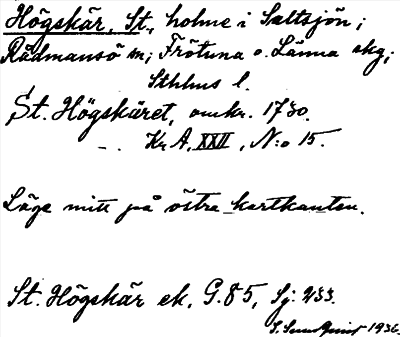 Högskär, St., holme i Saltsjön;
Rådmansö sn; Frötuna o. Länna skg;
Sthlms l.
St. Högskäret, omkr. 1730.
Kr A, XXII, N:o 15.
Läge mitt på östra kartkanten.
St. Högskär ek, G.85, Sj: 233.
1936.